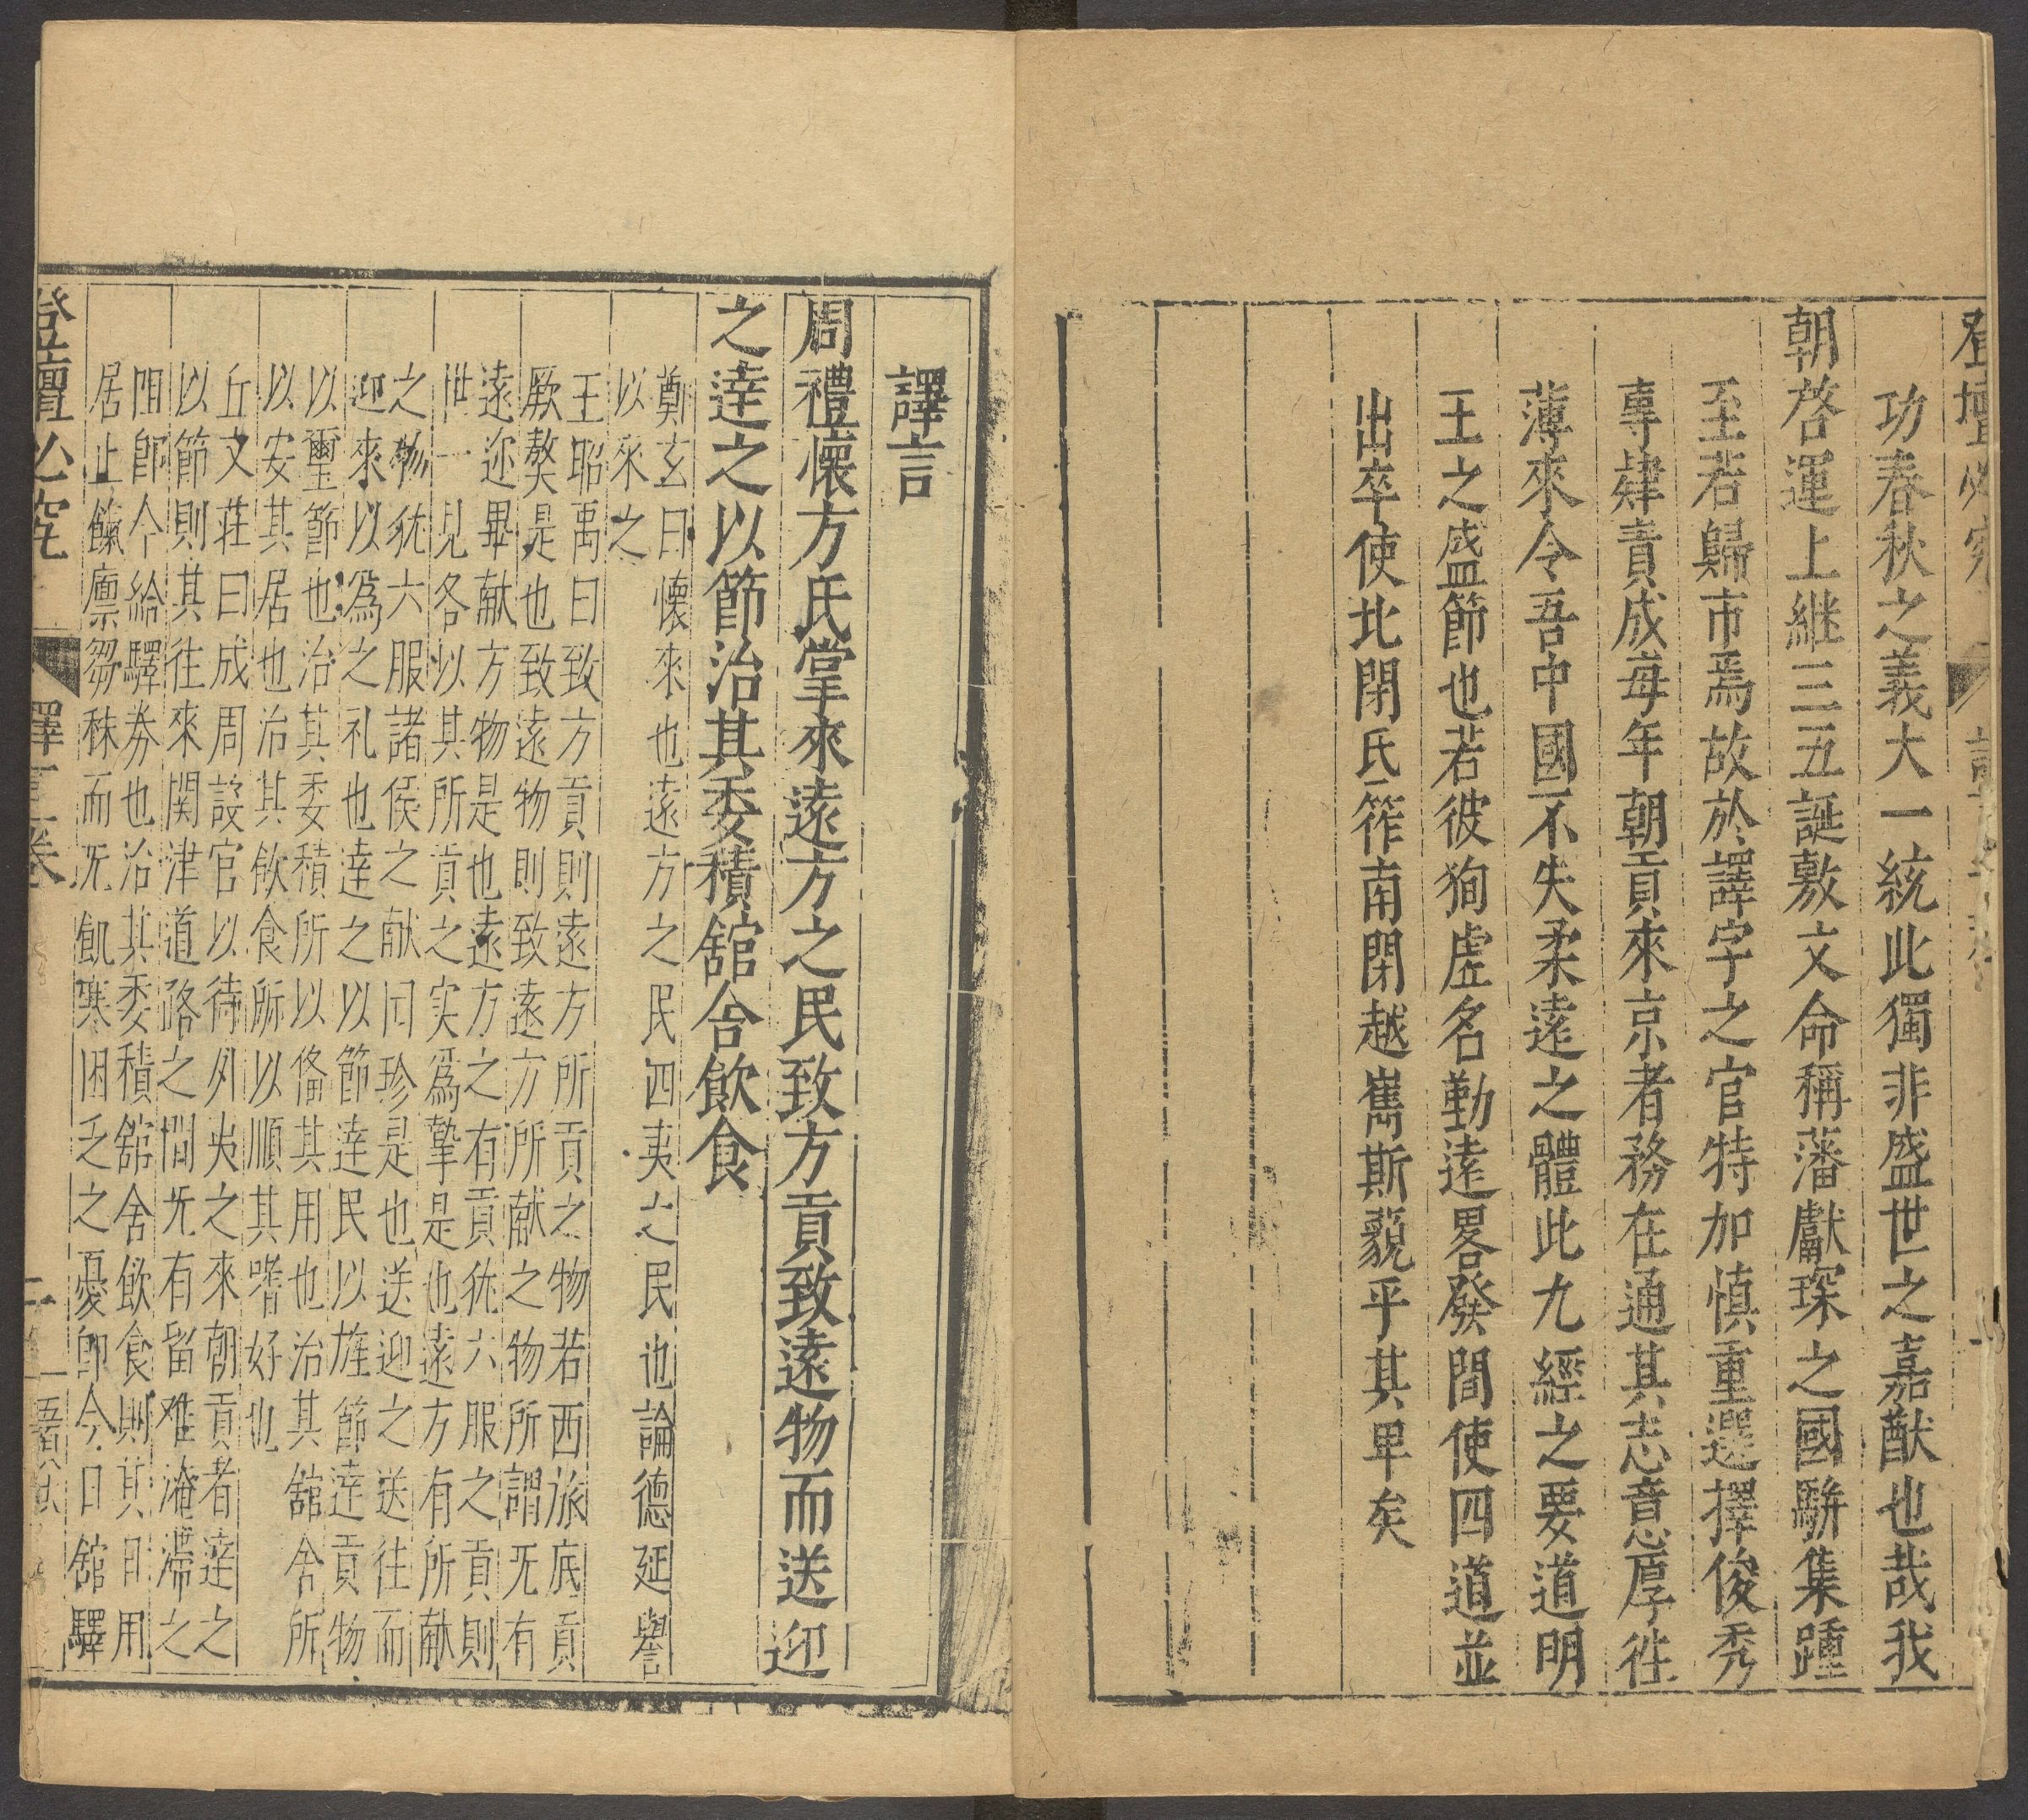 登壇必究
功春秋之義大一統此獨非盛世之嘉猷也哉我
朝啓運上継三五誕敷文命稱藩獻琛之國駢集踵
至若歸市焉故於譯字之官特加慎重選擇俊秀
專肄責成每年朝貢來京者務在通其志意厚徃
薄來令吾中國不失柔遠之體此九經之要道明
王之盛節也若彼狥虛名勤逺畧發間使四道並
出卒使北閉氐筰南閉越嶲斯藐乎其卑矣
譯言
周禮懷方氏掌來遠方之民致方貢致遠物而送迎
之逹之以節治其委積舘舍飲食
鄭玄曰懷來也遠方之民四夷之民也論德延譽
以來之
王昭禹曰致方貢則遠方所貢之物若西旅底貢
厥獒是也致遠物則致遠方所献之物所謂旡有
遠迩畢献方物是也遠方之有貢犹六服之貢則
世一見各以其所貢之实爲摯是也遠方有所献
之物犹六服諸侯之献囯珍是也送迎之送徃而
迎來以爲之礼也逹之以節逹民以旌節逹貢物
以璽節也治其委積所以俻其用也治其舘舍所
以安其居也治其飲食所以順其嗜好也
丘文莊曰成周設官以待外夷之來朝貢者逹之
以節則其徃來関津道路之間旡有留难淹滯之
阻卽今給驛劵也治其委積舘舍飲食則其日用
居止餼廪芻秣而旡飢寒困乏之憂卽今日舘驛
登壇必究 譯言 卷 二